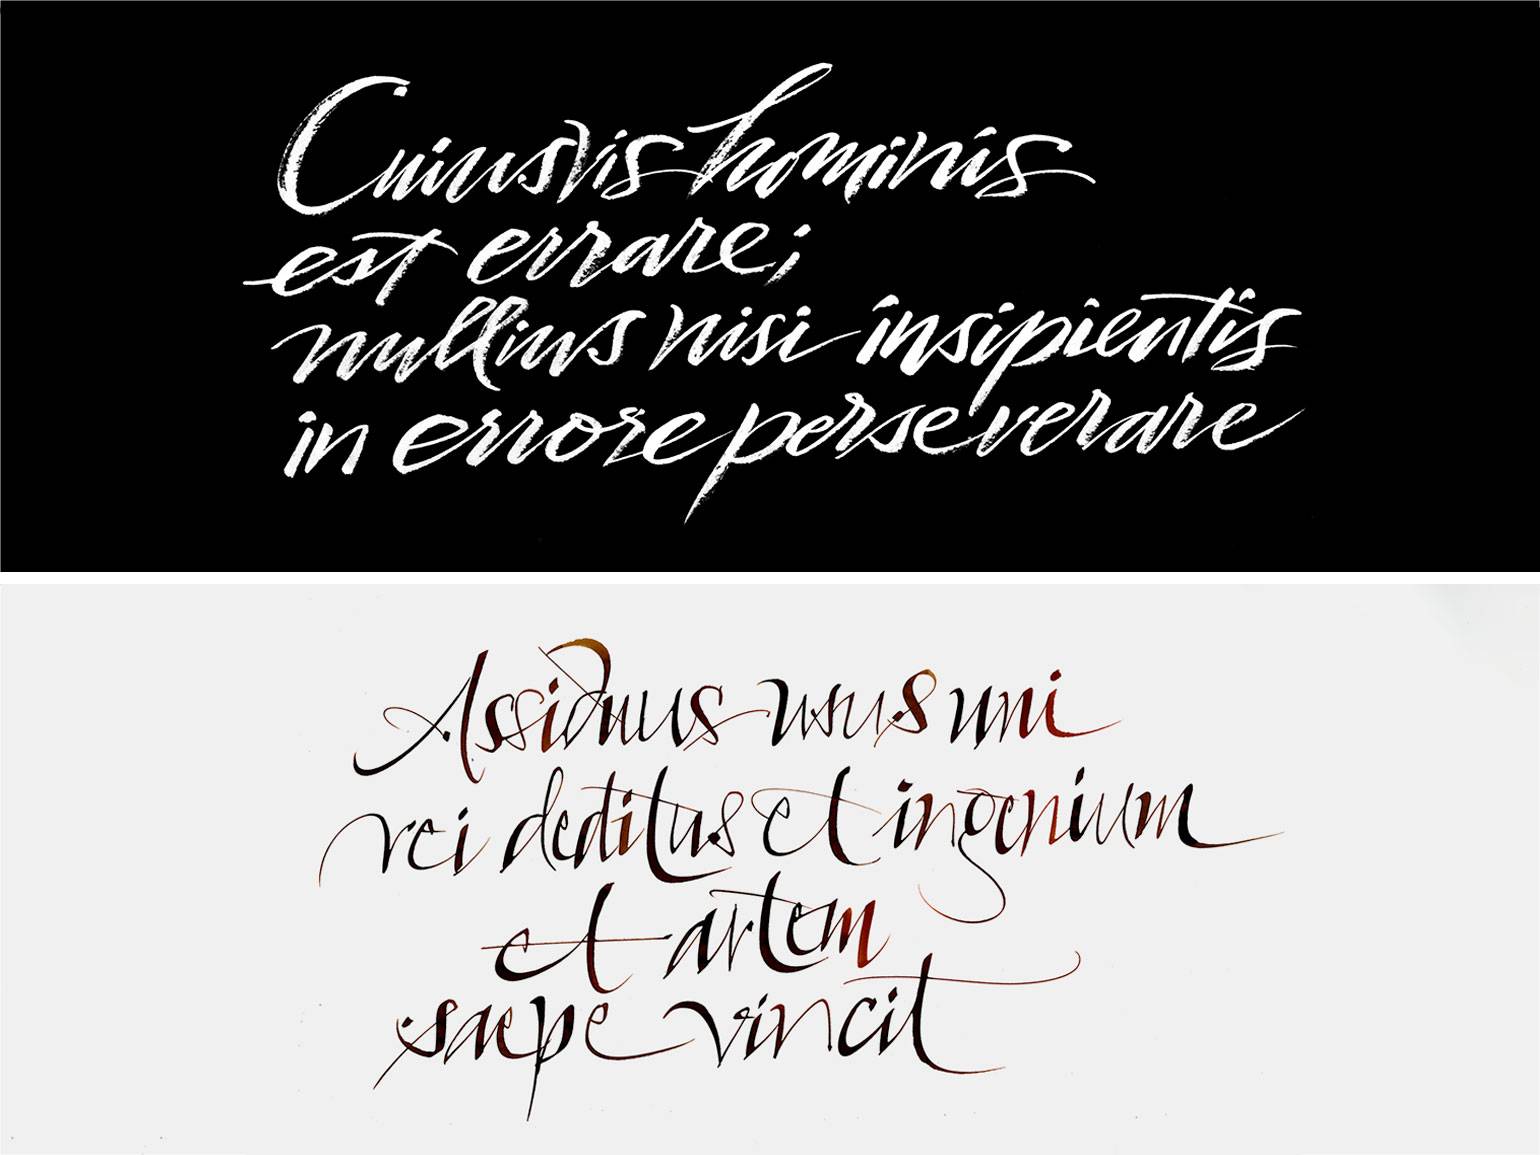 Cuiusvis hominis
est errare;
nullius nisi insipientis
in errore perseverare
Assiduus usus uni
rei deditus et ingenium
et artem
saepe vincit